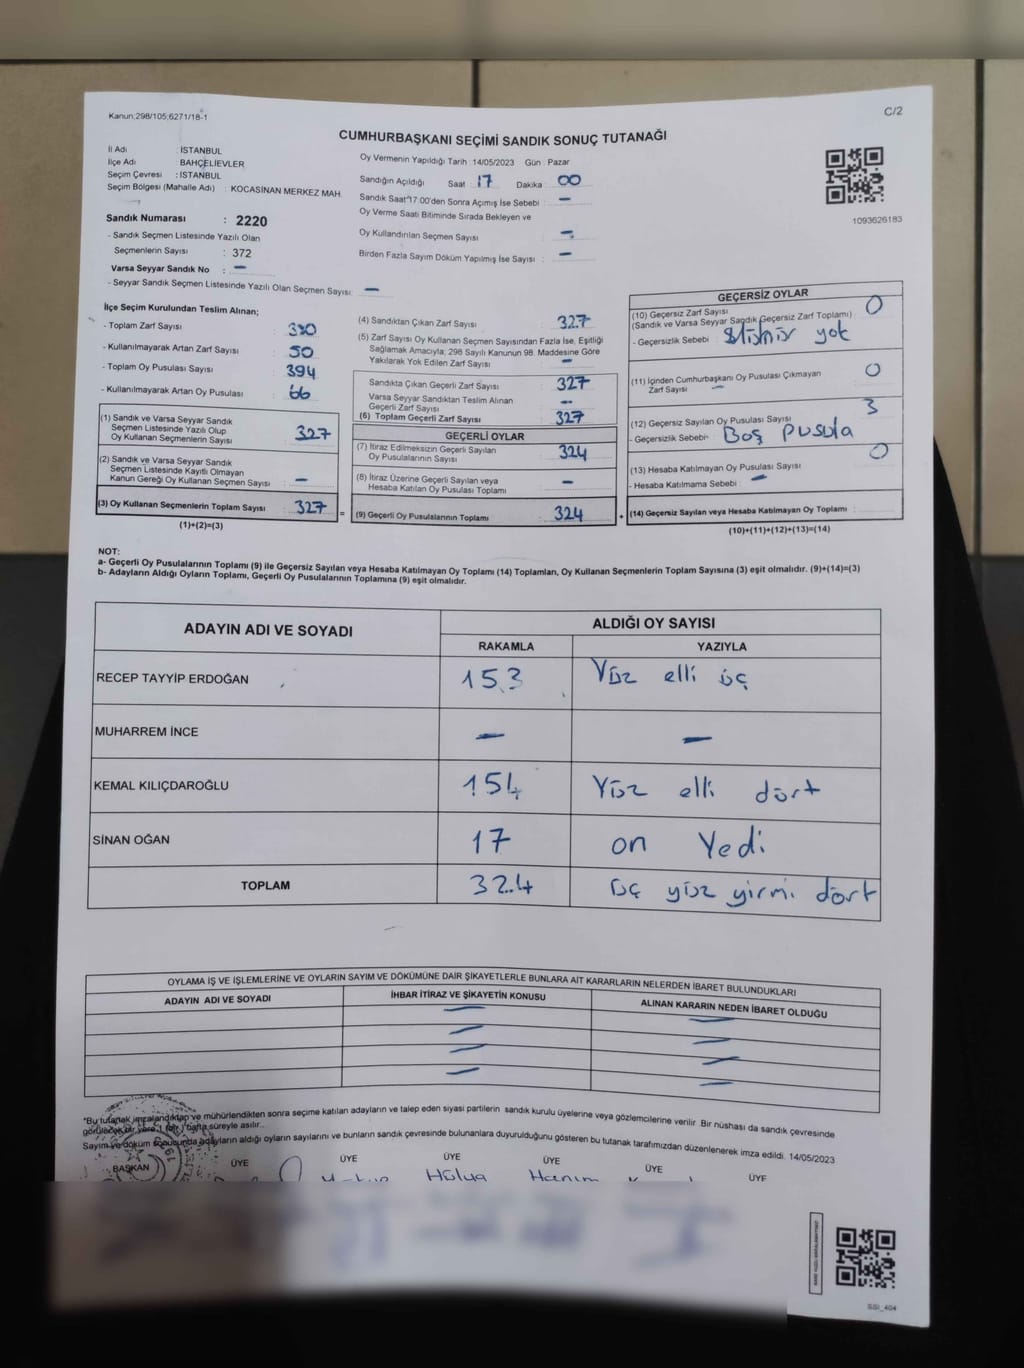 Kanun;298/105;6271/18-1
C/2
CUMHURBAŞKANI SEÇİMİ SANDIK SONUÇ TUTANAĞI
İl Adı : İSTANBUL
İlçe Adı : BAHÇELİEVLER
Seçim Çevresi : İSTANBUL
Seçim Bölgesi (Mahalle Adı) : KOCASİNAN MERKEZ MAH.
Sandık Numarası : 2220
- Sandık Seçmen Listesinde Yazılı Olan
Seçmenlerin Sayısı : 372
Varsa Seyyar Sandık No : –
- Seyyar Sandık Seçmen Listesinde Yazılı Olan Seçmen Sayısı: –
Oy Vermenin Yapıldığı Tarih :14/05/2023 Gün : Pazar
Sandığın Açıldığı Saat : 17 Dakika 00
Sandık Saat 17:00'den Sonra Açımış İse Sebebi : –
Oy Verme Saati Bitiminde Sırada Bekleyen ve
Oy Kullandırılan Seçmen Sayısı –
Birden Fazla Sayım Döküm Yapılmış İse Sayısı : –
1093626183
İlçe Seçim Kurulundan Teslim Alınan;
- Toplam Zarf Sayısı : 380
- Kullanılmayarak Artan Zarf Sayısı : 50
- Toplam Oy Pusulası Sayısı : 394
- Kullanılmayarak Artan Oy Pusulası : 66
(1) Sandık ve Varsa Seyyar Sandık
Seçmen Listesinde Yazılı Olup
Oy Kullanan Seçmenlerin Sayısı : 327
(2) Sandık ve Varsa Seyyar Sandık
Seçmen Listesinde Kayıtlı Olmayan
Kanun Gereği Oy Kullanan Seçmen Sayısı : –
(3) Oy Kullanan Seçmenlerin Toplam Sayısı : 327
(1)+(2)=(3)
(4) Sandıktan Çıkan Zarf Sayısı : 327
(5) Zarf Sayısı Oy Kullanan Seçmen Sayısından Fazla İse, Eşitliği
Sağlamak Amacıyla; 298 Sayılı Kanunun 98. Maddesine Göre
Yakılarak Yok Edilen Zarf Sayısı : –
Sandıkta Çıkan Geçerli Zarf Sayısı : 327
Varsa Seyyar Sandıktan Teslim Alınan
Geçerli Zarf Sayısı : –
(6) Toplam Geçerli Zarf Sayısı : 327
GEÇERLİ OYLAR
(7) İtiraz Edilmeksizin Geçerli Sayılan
Oy Pusulalarının Sayısı : 324
(8) İtiraz Üzerine Geçerli Sayılan veya
Hesaba Katılan Oy Pusulası Toplamı : –
= (9) Geçerli Oy Pusulalarının Toplamı : 324
GEÇERSİZ OYLAR
(10) Geçersiz Zarf Sayısı 0
(Sandık ve Varsa Seyyar Sandık Geçersiz Zarf Toplamı)
- Geçersizlik Sebebi : yok
(11) İçinden Cumhurbaşkanı Oy Pusulası Çıkmayan 0
Zarf Sayısı –
(12) Geçersiz Sayılan Oy Pusulası Sayısı 3
- Geçersizlik Sebebi : Boş pusula
(13) Hesaba Katılmayan Oy Pusulası Sayısı 0
- Hesaba Katılmama Sebebi : –
+ (14) Geçersiz Sayılan veya Hesaba Katılmayan Oy Toplamı :
(10)+(11)+(12)+(13)=(14)
NOT:
a- Geçerli Oy Pusulalarının Toplamı (9) ile Geçersiz Sayılan veya Hesaba Katılmayan Oy Toplamı (14) Toplamları, Oy Kullanan Seçmenlerin Toplam Sayısına (3) eşit olmalıdır. (9)+(14)=(3)
b- Adayların Aldığı Oyların Toplamı, Geçerli Oy Pusulalarının Toplamına (9) eşit olmalıdır.
ADAYIN ADI VE SOYADI
ALDIĞI OY SAYISI
RAKAMLA YAZIYLA
RECEP TAYYİP ERDOĞAN 153 Yüz elli üç
MUHARREM İNCE – –
KEMAL KILIÇDAROĞLU 154 Yüz elli dört
SİNAN OĞAN 17 on Yedi
TOPLAM 324 üç yüz yirmi dört
OYLAMA İŞ VE İŞLEMLERİNE VE OYLARIN SAYIM VE DÖKÜMÜNE DAİR ŞİKAYETLERLE BUNLARA AİT KARARLARIN NELERDEN İBARET BULUNDUKLARI
ADAYIN ADI VE SOYADI İHBAR İTİRAZ VE ŞİKAYETİN KONUSU ALINAN KARARIN NEDEN İBARET OLDUĞU
– –
– –
– –
– –
*Bu tutanak imzalandıktan ve mühürlendikten sonra seçime katılan adayların ve talep eden siyasi partilerin sandık kurulu üyelerine veya gözlemcilerine verilir. Bir nüshası da sandık çevresinde
görülecek bir yere 1 (bir) hafta süreyle asılır.
Sayım ve döküm sonucunda adayların aldığı oyların sayılarını ve bunların sandık çevresinde bulunanlara duyurulduğunu gösteren bu tutanak tarafımızdan düzenlenerek imza edildi. 14/05/2023
BAŞKAN ÜYE ÜYE ÜYE ÜYE ÜYE ÜYE
Hülya Hanım
SSI_404